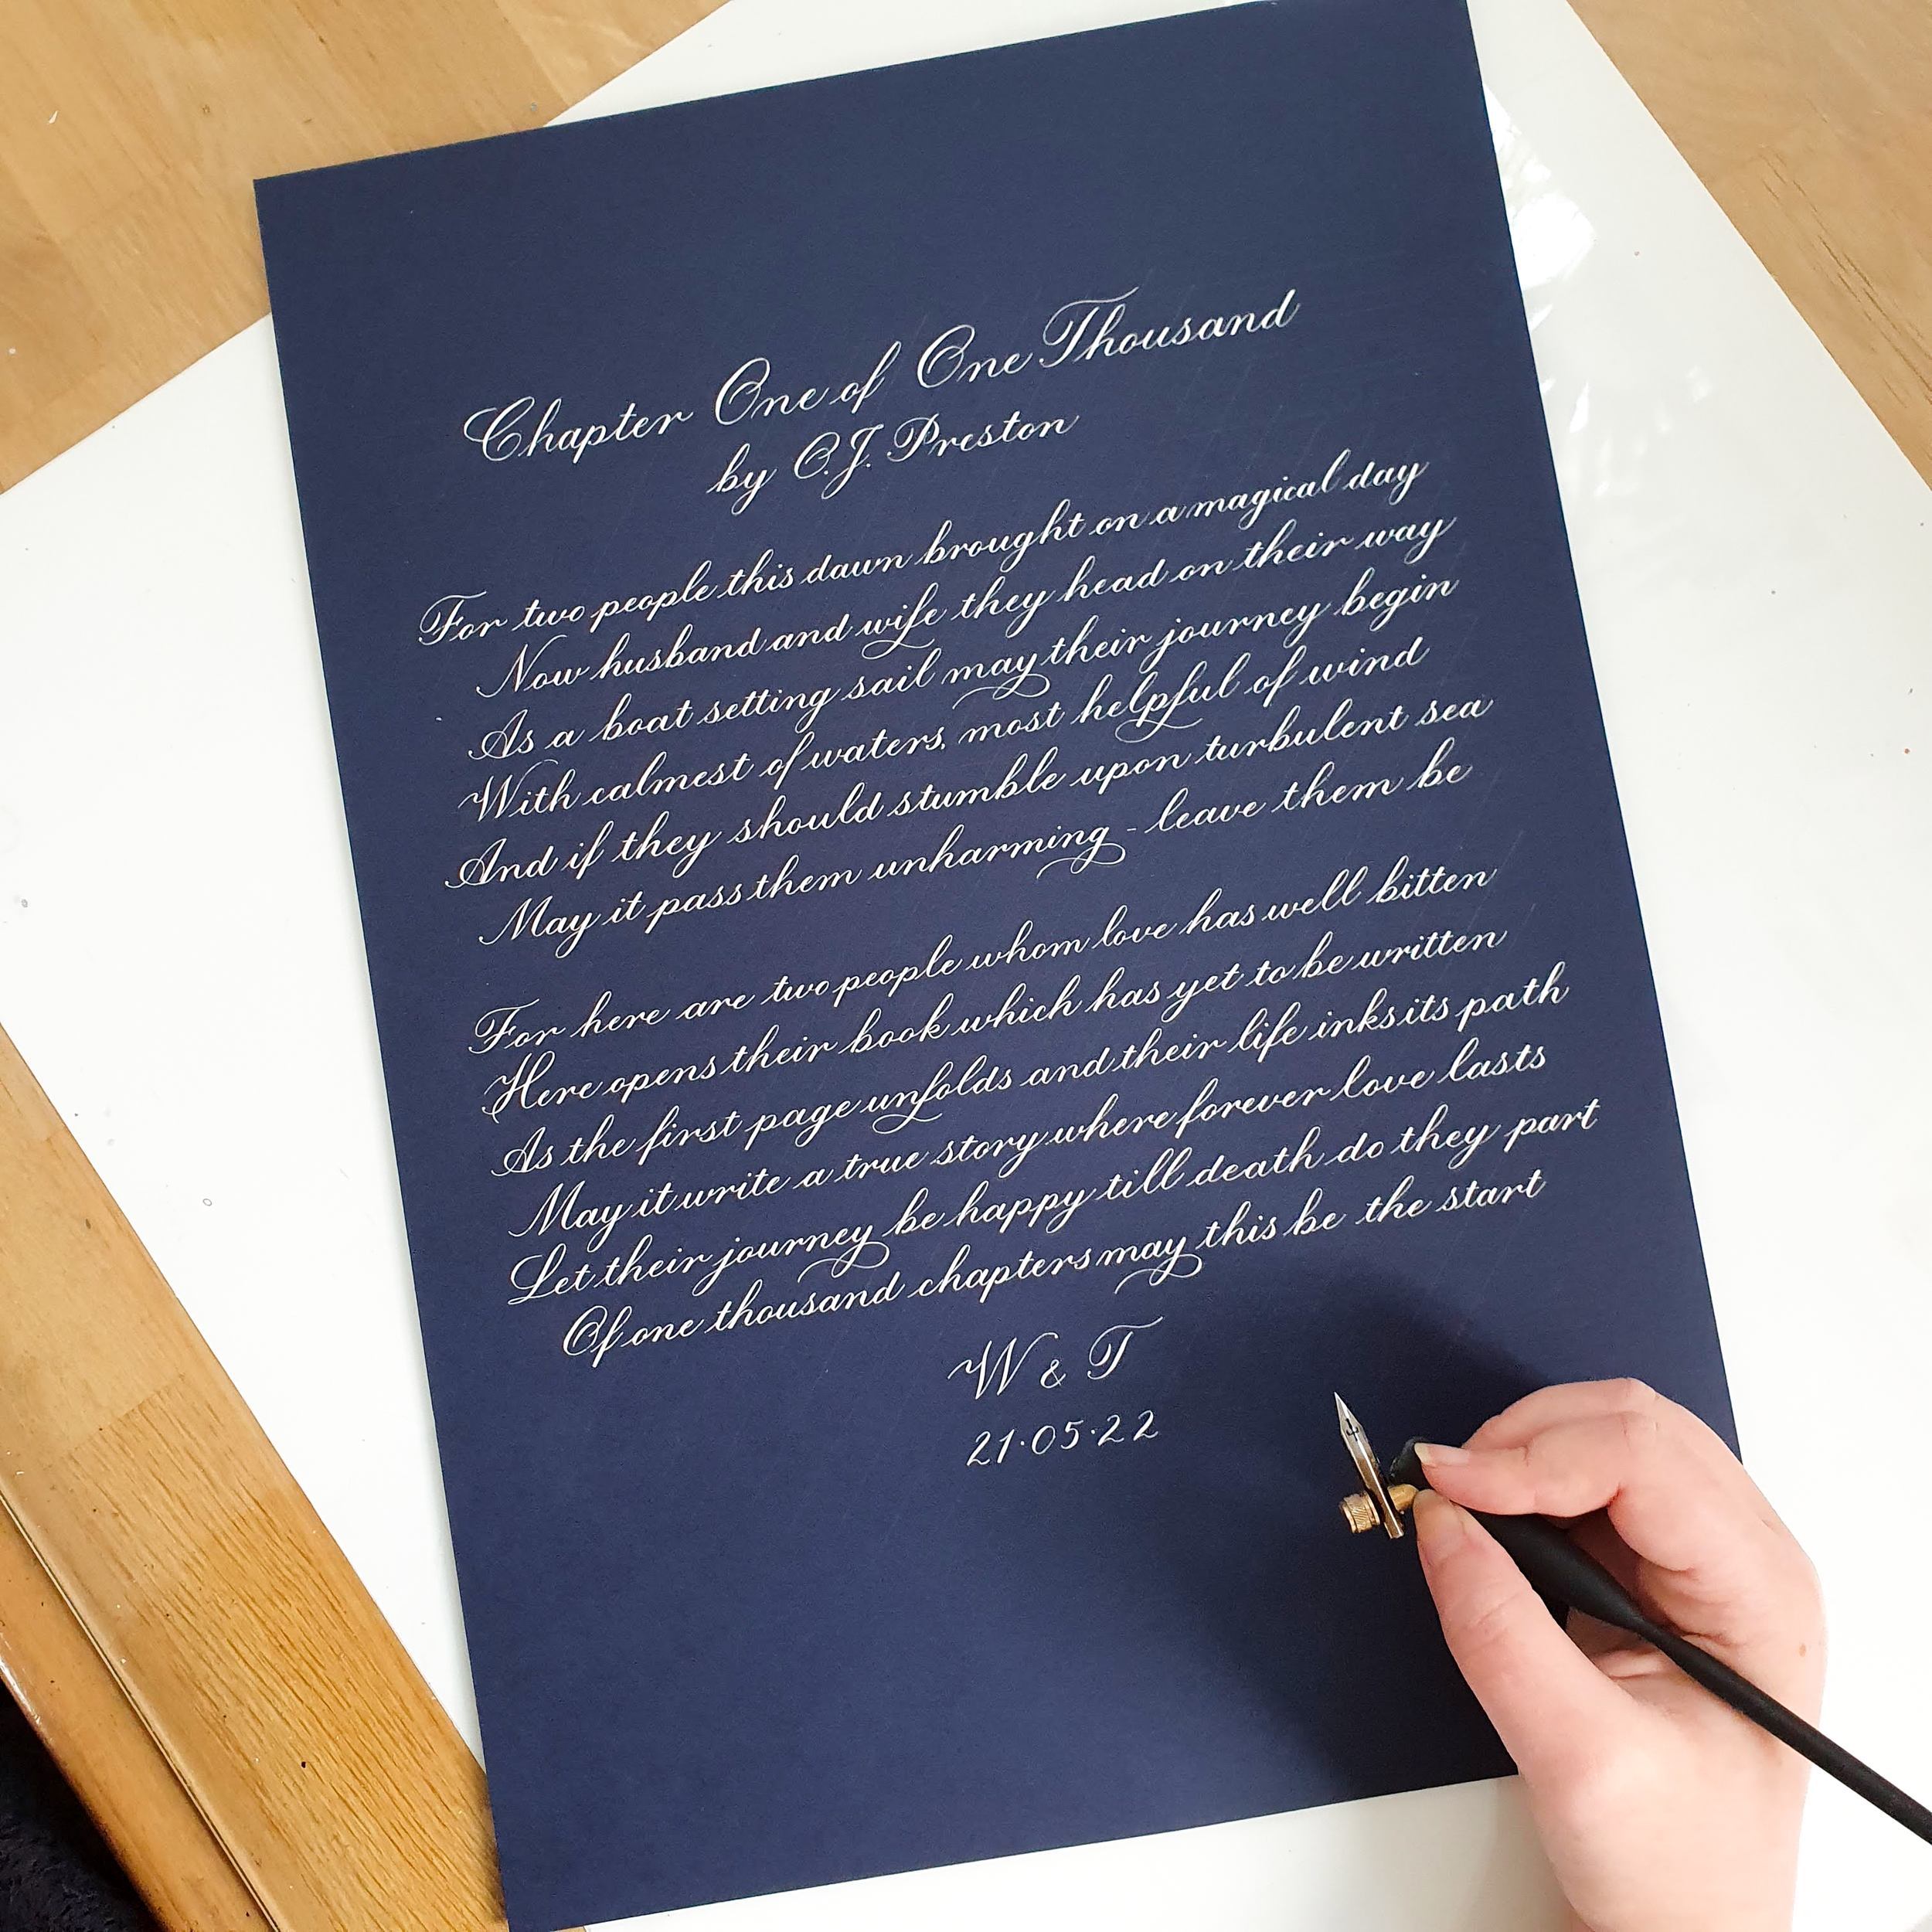 Chapter One of One Thousand
by C.J. Preston
For two people this dawn brought on a magical day
Now husband and wife they head on their way
As a boat setting sail may their journey begin
With calmest of waters, most helpful of wind
And if they should stumble upon turbulent sea
May it pass them unharming - leave them be
For here are two people whom love has well bitten
Here opens their book which has yet to be written
As the first page unfolds and their life inks its path
May it write a true story where forever love lasts
Let their journey be happy till death do they part
Of one thousand chapters may this be the start
W & T
21·05·22